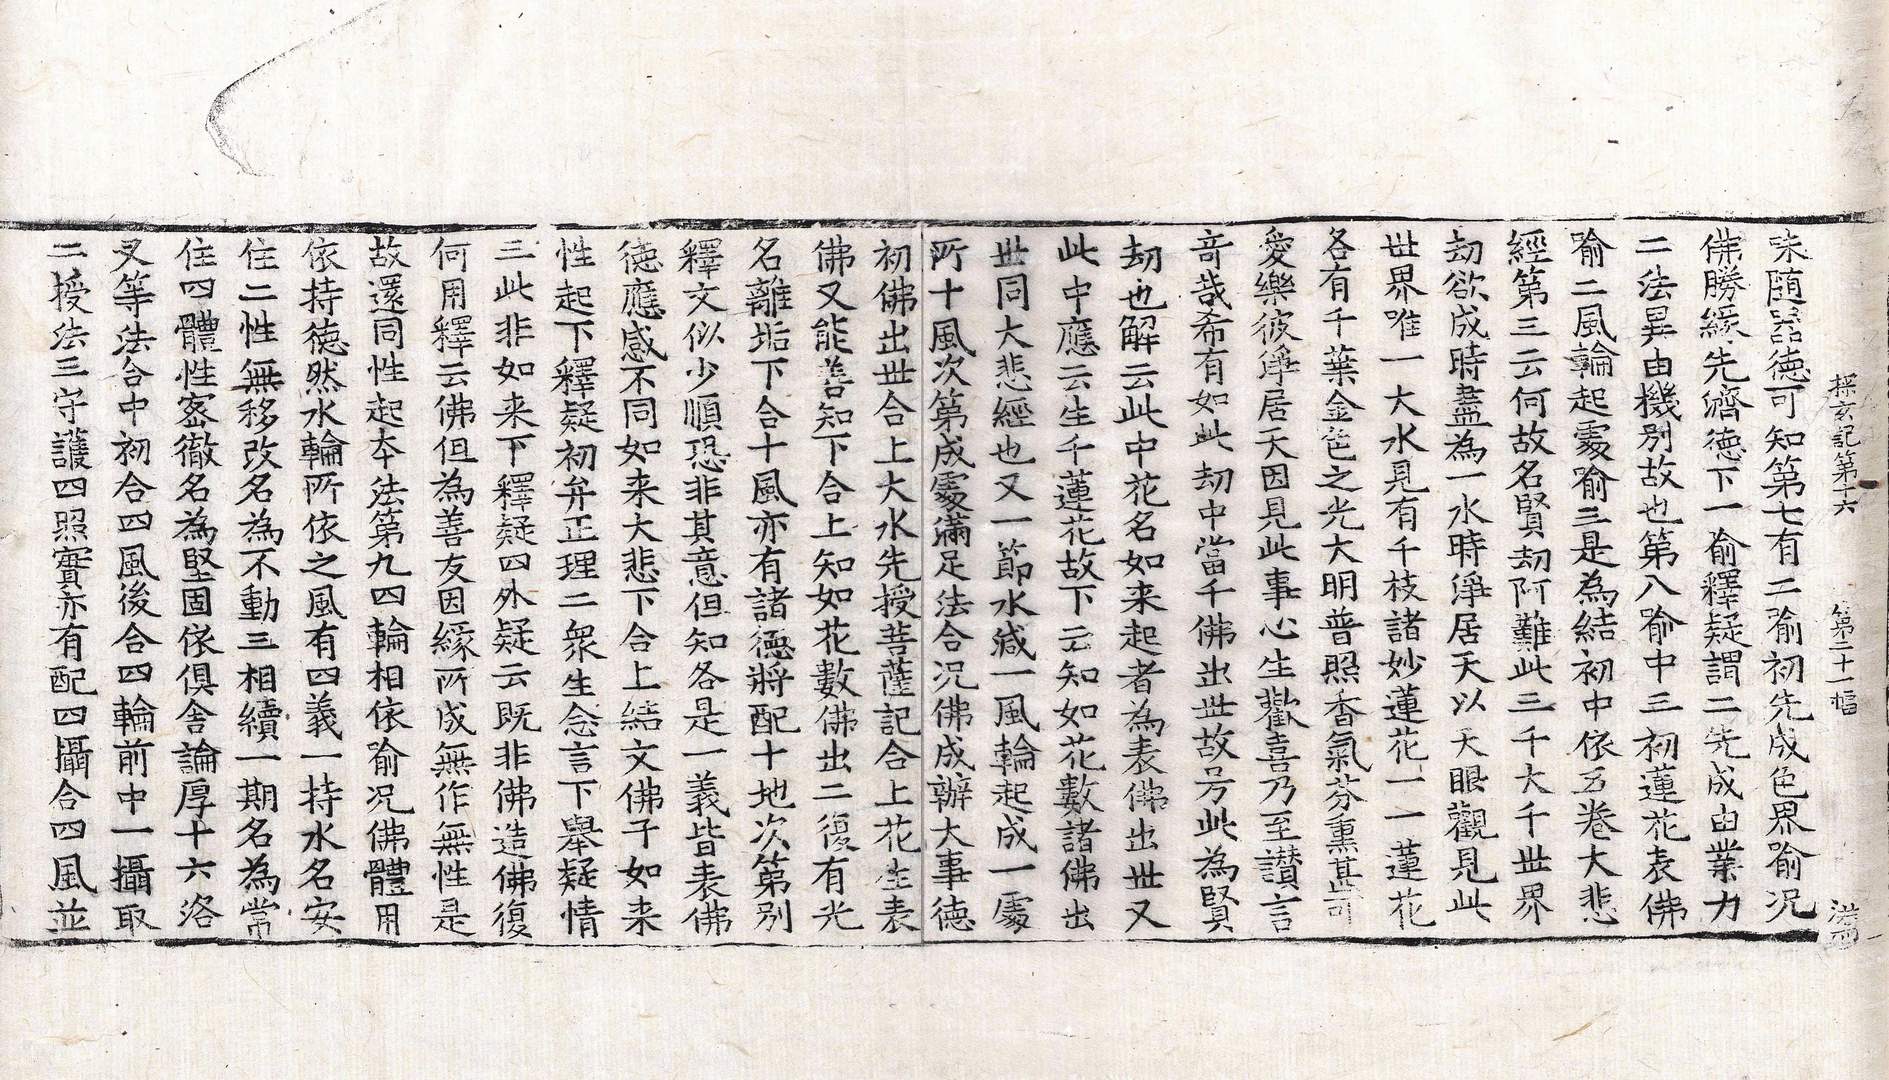 探玄記第十六 第二十一幅 溢四
味随器德可知第七有二喻初先成色界喻况
佛勝緣先濟德下一喻釋疑謂二先成由業力
二法異由機別故也第八喻中三初蓮花表佛
喻二風輪起處喻三是為結初中依五卷大悲
經第三云何故名賢劫阿難此三千大千世界
劫欲成時盡為一水時淨居天以天眼觀見此
世界唯一大水見有千枝諸妙蓮花一一蓮花
各有千葉金色之光大明普照香氣芬熏甚可
愛樂彼淨居天因見此事心生歡喜乃至讃言
竒哉希有如此劫中當千佛出世故号此為賢
劫也解云此中花名如来起者為表佛出世又
此中應云生千蓮花故下云知如花數諸佛出
世同大悲經也又一節水減一風輪起成一處
所十風次第成處滿足法合况佛成辦大事德
初佛出世合上大水先授菩薩記合上花生表
佛又能善知下合上知如花數佛出二復有光
名離垢下合十風亦有諸德將配十地次第別
釋文似少順恐非其意但知各是一義皆表佛
德應感不同如来大悲下合上結文佛子如来
性起下釋疑初弁正理二衆生念言下舉疑情
三此非如来下釋疑四外疑云既非佛造佛復
何用釋云佛但為善友因緣所成無作無性是
故還同性起本法第九四輪相依喻况佛體用
依持德然水輪所依之風有四義一持水名安
住二性無移改名為不動三相續一期名為常
住四體性密徹名為堅固依俱舍論厚十六洛
叉等法合中初合四風後合四輪前中一攝取
二授法三守護四照實亦有配四攝合四風並